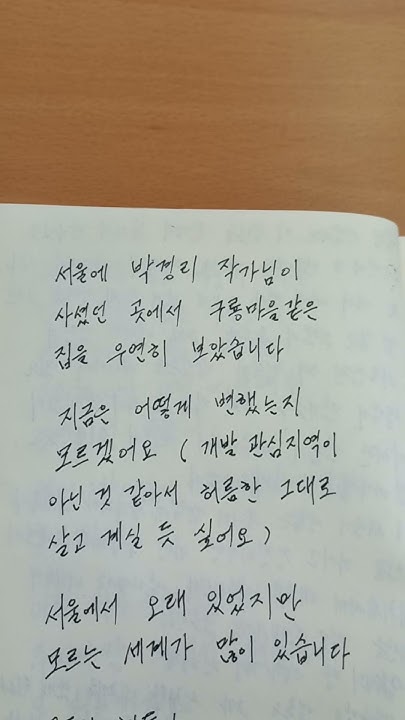 서울에 박경리 작가님이
사셨던 곳에서 구룡마을같은
집을 우연히 보았습니다
지금은 어떻게 변했는지
모르겠어요 ( 개발 관심지역이
아닌 것 같아서 허름한 그대로
살고 계실 듯 싶어요 )
서울에서 오래 있었지만
모르는 세계가 많이 있습니다